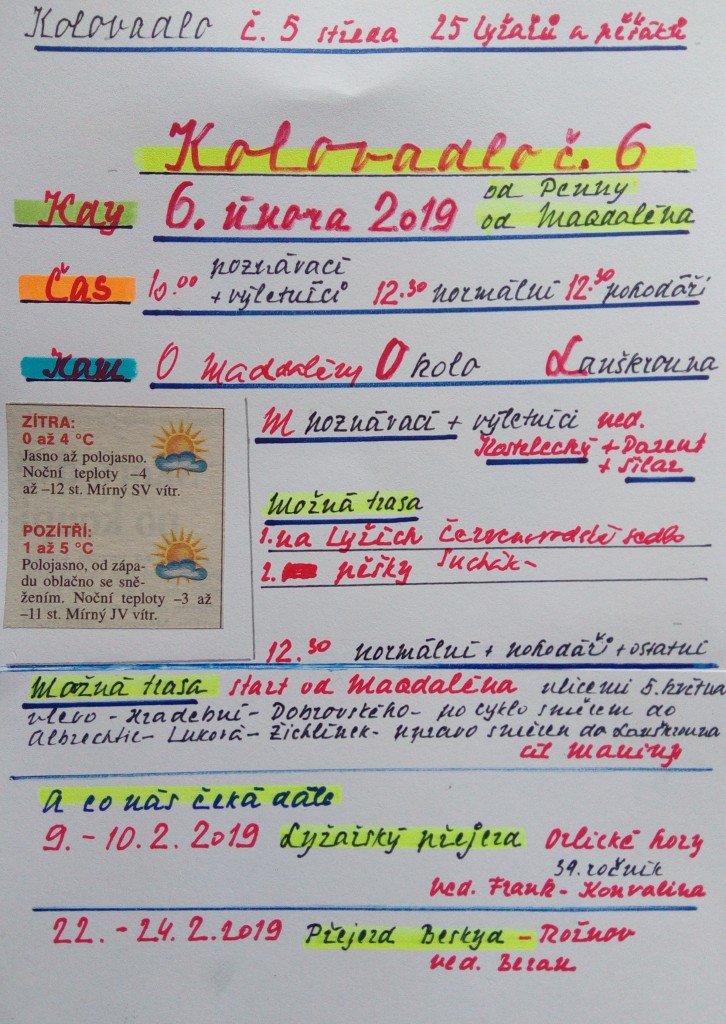 Kolovadlo č. 5 středa 25 lyžařů a pěšáků
Kolovadlo č. 6
Kdy 6. února 2019 od Penny
od Magdaléna
Čas 10.00 poznávací
+ výletníci 12.30 normální 12.30 pohodáři
Kam O Magdalény Okolo Lanškrouna
ZÍTRA:
0 až 4 °C
Jasno až polojasno.
Noční teploty –4
až –12 st. Mírný SV vítr.
POZÍTŘÍ:
1 až 5 °C
Polojasno, od západu
oblačno se sněžením.
Noční teploty –3 až
–11 st. Mírný JV vítr.
M poznávací + výletníci ved.
Kostelecký +
+ Šilar
Možná trasa
1. na Lyžích Červenovodské sedlo
2. pěšky Suchák-
12.30 normální + pohodáři + ostatní
Možná trasa start od Magdaléna ulicemi 5. května
vlevo - Hradební - Dobrovského - po cyklo směrem do
Albrechtic - Luková - Žichlínek - vpravo směrem do Lanškrouna
cíl
A co nás čeká dále
9. - 10. 2. 2019 Lyžařský přejezd Orlické hory
39. ročník
ved. Frank - Konvalina
22. - 24. 2. 2019 Přejezd Beskyd - Rožnov
ved. Beran